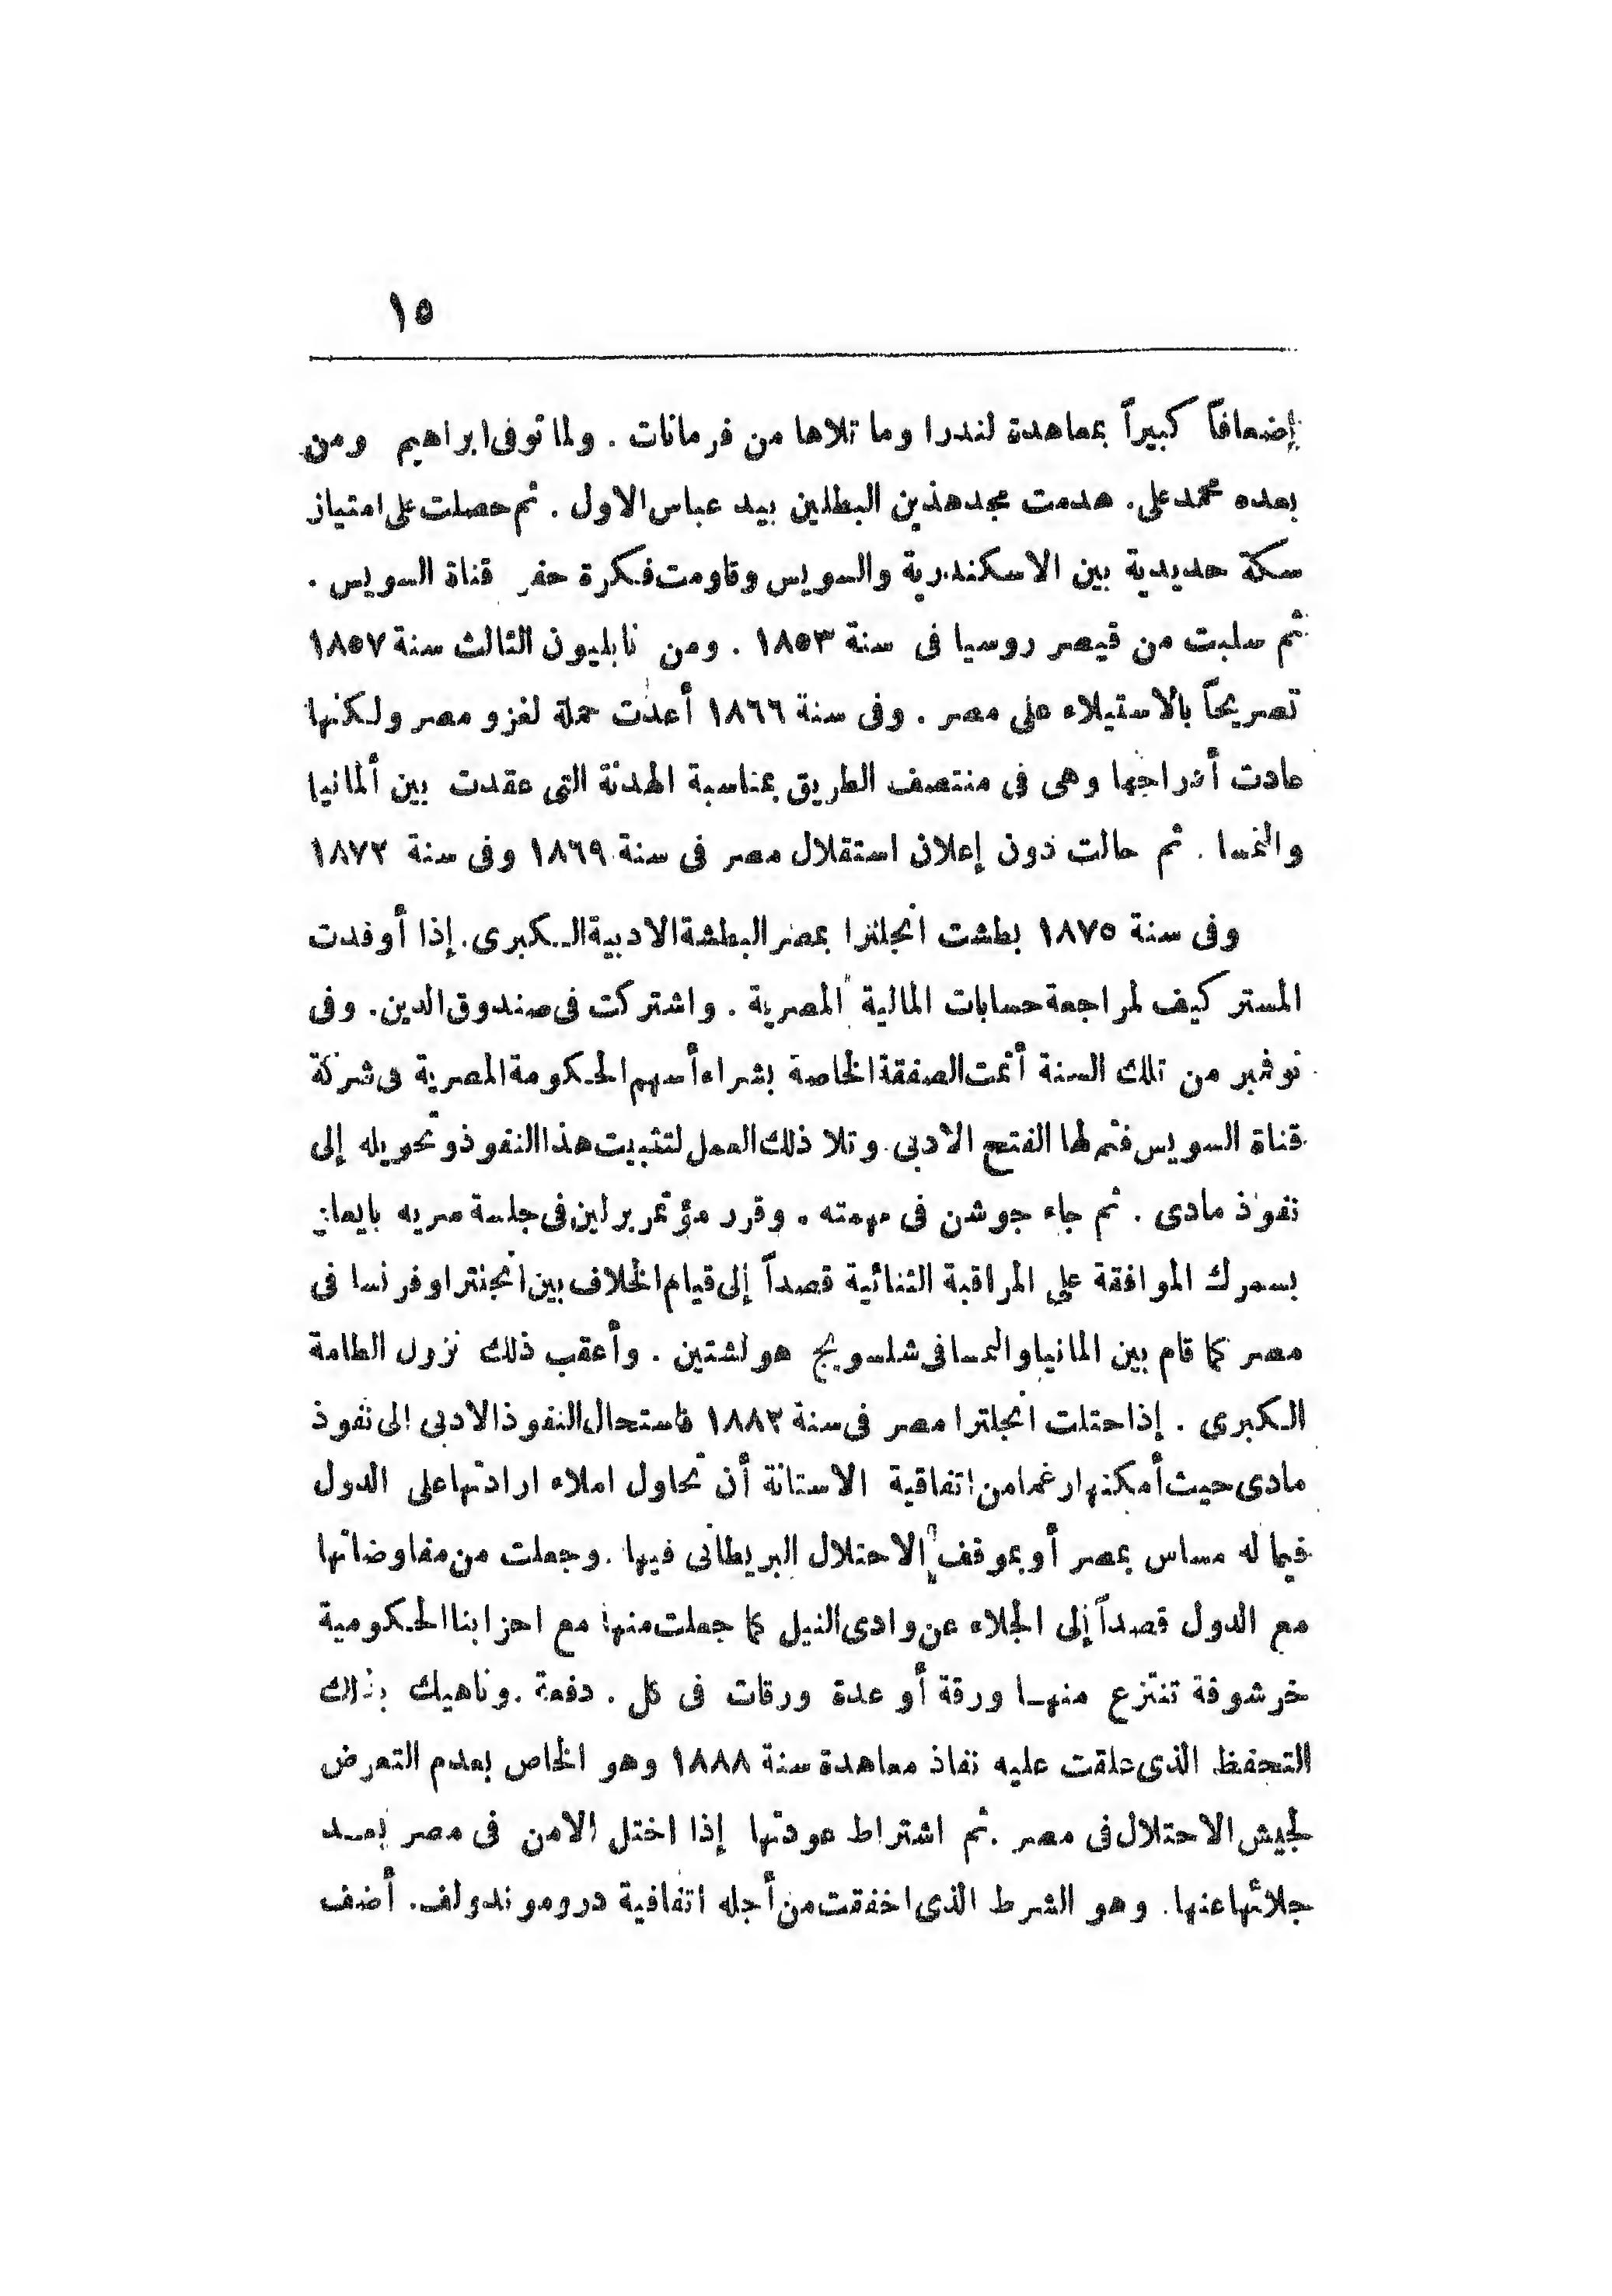 ١٥
إضعافاً كبيراً بمعاهدة لندرا وما تلاها من فرمانات . ولما توفى ابراهيم ومن
بعده محمد على . هدمت مجد هذين البطلين بيد عباس الاول . ثم حصلت على امتياز
سكة حديدية بين الاسكندرية والسويس وقاومت فكرة حفر قناة السويس .
ثم سلبت من قيصر روسيا فى سنة ١٨٥٣ . ومن نابليون الثالث سنة ١٨٥٧
تصريحاً بالاستيلاء على مصر . وفى سنة ١٨٦٦ أعدت حملة لغزو مصر ولكنها
عادت أدراجها وهى فى منتصف الطريق بمناسبة الهدنة التى عقدت بين ألمانيا
والنمسا . ثم حالت دون إعلان استقلال مصر فى سنة ١٨٦٩ وفى سنة ١٨٧٢
وفى سنة ١٨٧٥ بطشت انجلترا بمصر البطشة الادبية الكبرى . إذا أوفدت
المستر كيف لمراجعة حسابات المالية المصرية . واشتركت فى صندوق الدين . وفى
نوفمبر من تلك السنة أتمت الصفقة الخاصة بشراء أسهم الحكومة المصرية فى شركة
قناة السويس فتم لها الفتح الادبى . وتلا ذلك العمل لتثبيت هذا النفوذ وتحويله إلى
نفوذ مادى . ثم جاء جوشن فى مهمته . وقرر مؤتمر برلين فى جلسة سريه بايعاز
بسمرك الموافقة على المراقبة الثنائية قصداً إلى قيام الخلاف بين انجنترا وفرنسا فى
مصر كما قام بين المانيا والنمسا فى شلسويج هولشتين . وأعقب ذلك نزول الطامة
الكبرى . إذا حتلت انجلترا مصر فى سنة ١٨٨٢ فاستحال النفوذ الادبى الى نفوذ
مادى حيث أمكنها رغما من اتفاقية الاستانة أن تحاول املاء ارادتها على الدول
فيما له مساس بمصر أو بموقف الاحتلال البريطانى فيها . وجعلت من مفاوضاتها
مع الدول قصداً إلى الجلاء عن وادى النيل كما جعلت منها مع احزابنا الحكومية
خرشوفة تنتزع منها ورقة أو عدة ورقات فى كل . دفعة . وناهيك بذلك
التحفظ الذى علقت عليه نفاذ معاهدة سنة ١٨٨٨ وهو الخاص بعدم التعرض
لجيش الاحتلال فى مصر . ثم اشتراط عودتها إذا اختل الامن فى مصر بعد
جلائها عنها . وهو الشرط الذى اخفقت من أجله اتفاقية درومو ندولف . أضف